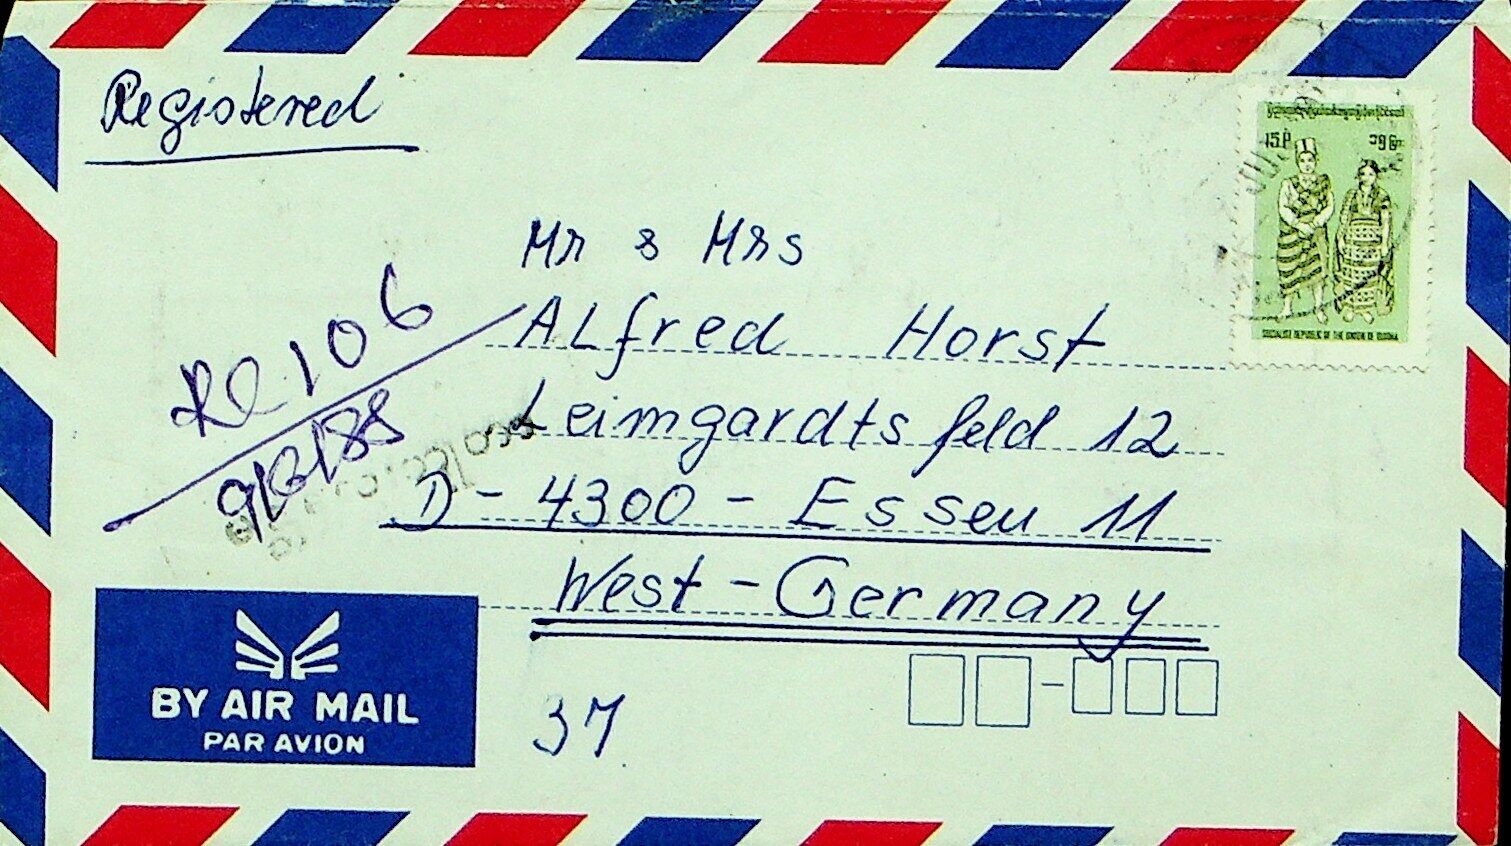 Registered
15.P
SOCIALIST REPUBLIC OF THE UNION OF BURMA
Mr & Mrs
Alfred Horst
Leimgardtsfeld 12
D - 4300 - Essen 11
West - Germany
106
BY AIR MAIL
PAR AVION
37